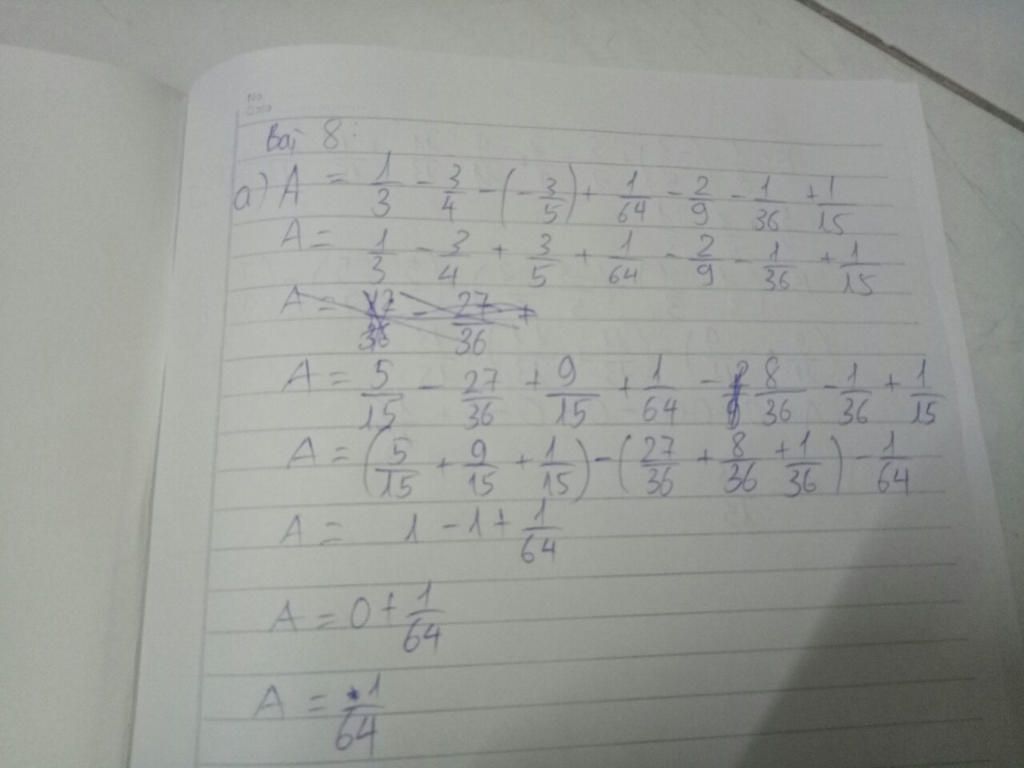 No
Date
Bài 8:
a) A = 1/3 - 3/4 - (-3/5) + 1/64 - 2/9 - 1/36 + 1/15
A = 1/3 - 3/4 + 3/5 + 1/64 - 2/9 - 1/36 + 1/15
A = 5/15 - 27/36 + 9/15 + 1/64 - 8/36 - 1/36 + 1/15
A = (5/15 + 9/15 + 1/15) - (27/36 + 8/36 + 1/36) - 1/64
A = 1 - 1 + 1/64
A = 0 + 1/64
A = 1/64